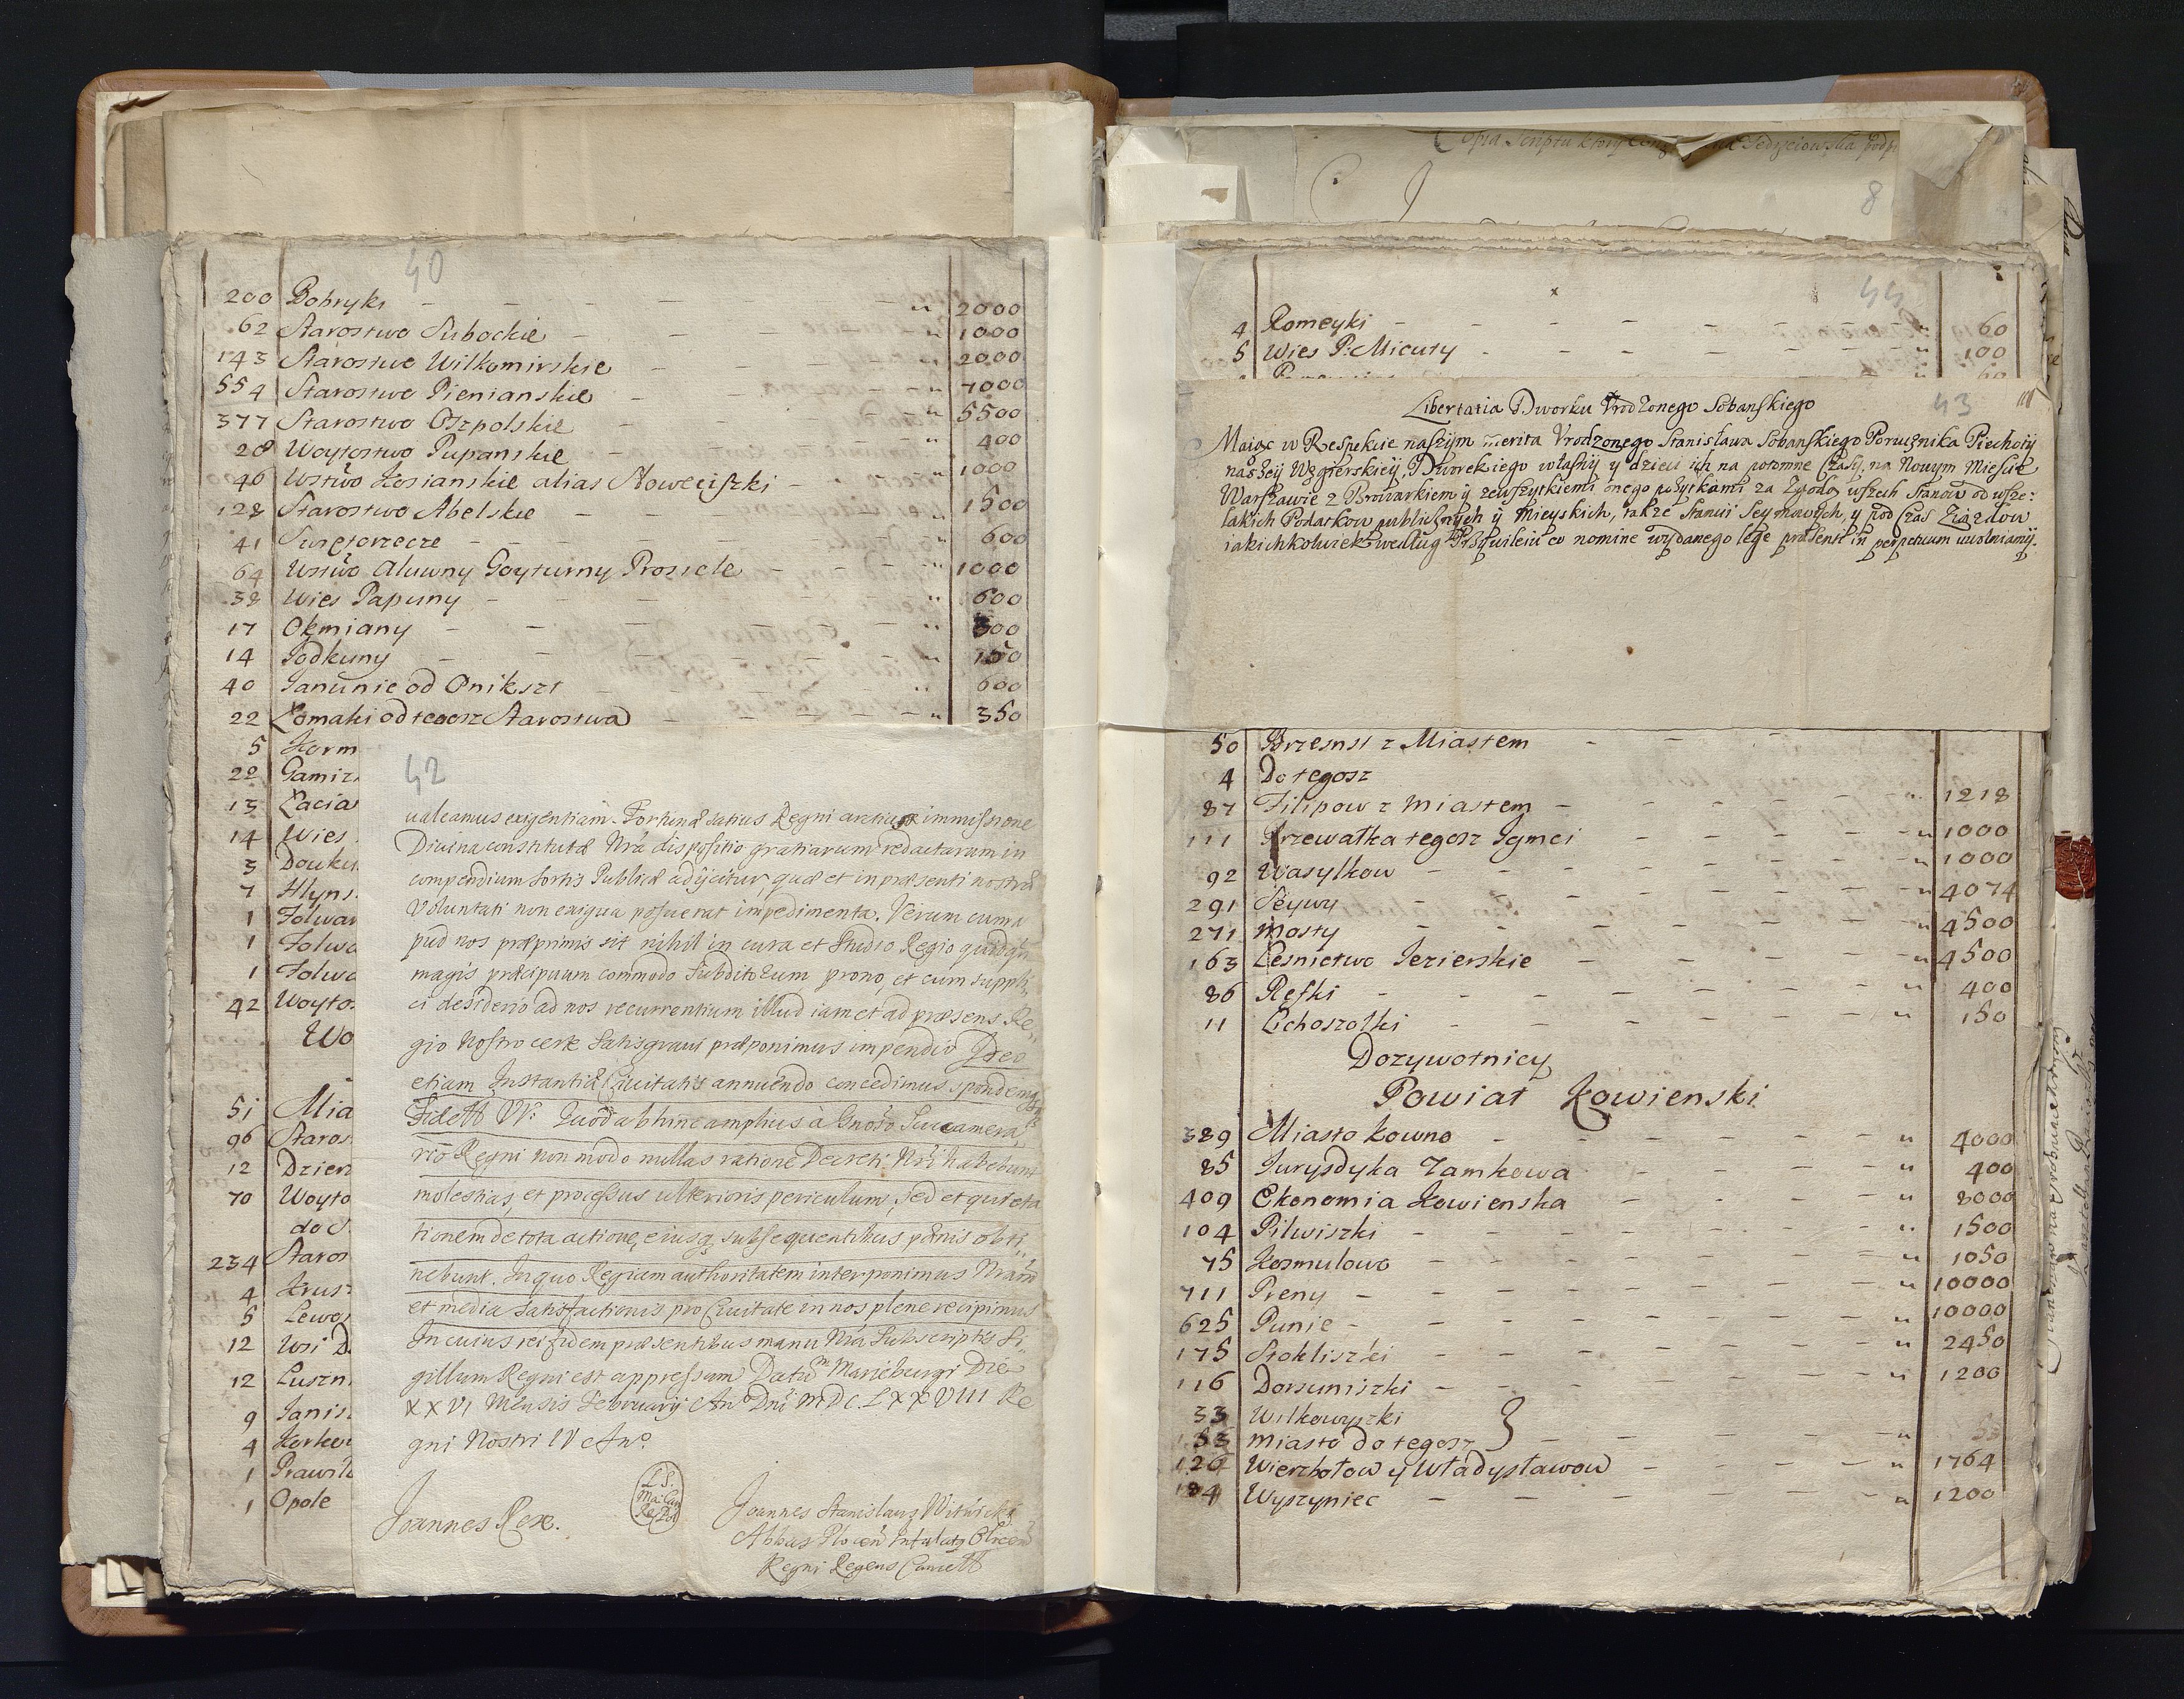 40
200 Bobryki " 2000
62 Starostwo Subockie " 1000
143 Starostwo Wilkomirskie " 2000
554 Starostwo Pienianskie " 7000
377 Starostwo Oszpolskie " 5500
28 Woytostwo Pupanskie " 400
46 Wstwo Kosianskie alias Nowociszki 1000
128 Starostwo Abelskie " 1500
41 Swiętorzecze " 600
64 Wstwo Aluwny Goyturny Prosscle " 1000
38 Wies Papuny " 600
17 Okmiany " 300
14 Jodkuny " 150
40 Janunie od Onikszt " 600
22 Łomaki od tegosz Starostwa " 350
5 Korm
22 Gamiz
13 Łacia
14 Wies
3 Douku
7 Hlyns
1 Folwar
1 Folwa
1 Folwa
42 Woyto
Wo
51 Mia
96 Staros
12 Dzier
70 Woyto
do S
234 Staros
4 Krus
5 Lewo
12 Wsi D
12 Luszn
9 Janis
4 Korko
1 Prawil
1 Opole
42
ualeamus exigentiam. Fortunæ satius Regni arctius immissione
Diuina constitutæ Nrâ dispositio gratiarum redactarum in
compendium sortis Publicæ adijcitur, quæ et in præsenti nostræ
Voluntati non exigua posuerat impedimenta. Verum cum a
pud nos præprimis sit nihil in cura et studio Regio quidq
magis præcipuum commodo Subditorum prono, et cum suppli
ci desiderio ad nos recurrentium illud iam et ad præsens Re
gio Nostro certe satis graui præponimus impendio Deo
etiam Instantiæ Ciuitatis annuendo concedimus spondemus
Fidett Vr. Quod abhinc amplius à Gnoso Succamera
rio Regni non modo nullas ratione Decreti Nri habebunt
molestias, et processus ulterioris periculum, sed et quieta
tionem de tota actione, eiusq subsequentibus pænis obti
nebunt. In quo Regiam authoritatem interponimus Nram
et media satisfactionis pro Ciuitate in nos plene recipimus
In cuius rei fidem præsentibus manu Nra Subscriptis Si
gillum Regni est appressum Datum Marieburgi Die
XXVI Mensis February Ano Dni MDCLXXVIII Re
gni Nostri IV Ano.
Joannes Rex.
L S.
Ma: Can
Re Pol
Joannes Stanislaus Witwicki
Abbas Plocen
Regni Regens Cancell
8
44
4 Romeyki " 60
5 Wies P: Micuty " 100
60
43
Libertatia Dworku Vrodzonego Sobanskiego
Maiąc w Respekcie naszym merita Vrodzonego Stanisława Sobanskiego Porucznika Piechoty
naszey Węgierskiey, Dworek iego własny y dzieci ich na potomne Czasy, na Nowym Miescie
Warszawie z Browarkiem y zewszytkiemi onego pożytkami za Zgodą wszech Stanow od wsze:
lakich Podatkow publicznych y Mieyskich, także Stancii Seymowych, y pod Czas Ziazdow
iakichkolwiek według Przywileiu eo nomine wydanego lege præsenti in perpetuum uwolniamy.
50 Brzesnst z Miastem
4 Do tegosz
87 Filipow z Miastem " 1218
111 Przewalka tegosz Jgmci " 1000
92 Wasylkow " 1000
291 Seywy " 4074
271 Mosty " 4500
163 Lesnictwo Jezierskie " 4500
86 Refki " 400
11 Lichoszolki " 150
Dozywotnicy
Powiat Kowienski
389 Miasto Kowno " 4000
85 Jurysdyka Zamkowa " 400
409 Ekonomia Kowienska " 8000
104 Pilwiszki " 1500
75 Kosmulowo " 1050
711 Preny " 10000
625 Punie " 10000
175 Stokliszki " 2450
116 Dorsuniszki " 1200
33 Wilkowyszki
Miasto do tegosz "
Wierzbołow y Władysławow " 1764
Wyszyniec " 1200